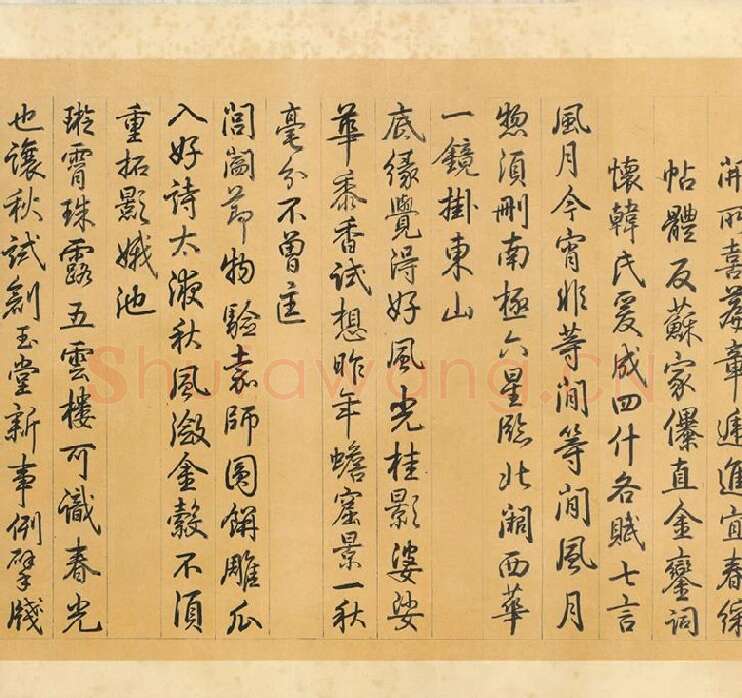 喜章遞進宜春
帖體反蘇家儤直金鑾詞
懷韓氏爰成四什各賦七言
風月今宵非等閒等閒風月
惣須刪南極六星臨北闕西華
一鏡掛東山
底緣覺得好風光桂影婆娑
華黍香試想昨年蟾窟景一秋
毫分不曾匡
閶闔節物驗嘉師團餅雕瓜
入好詩太液秋風瀲金縠不須
重拓影娥池
璇霄珠露五雲樓可識春光
也讓秋試創玉堂新事例擘牋
Shufawang.CN